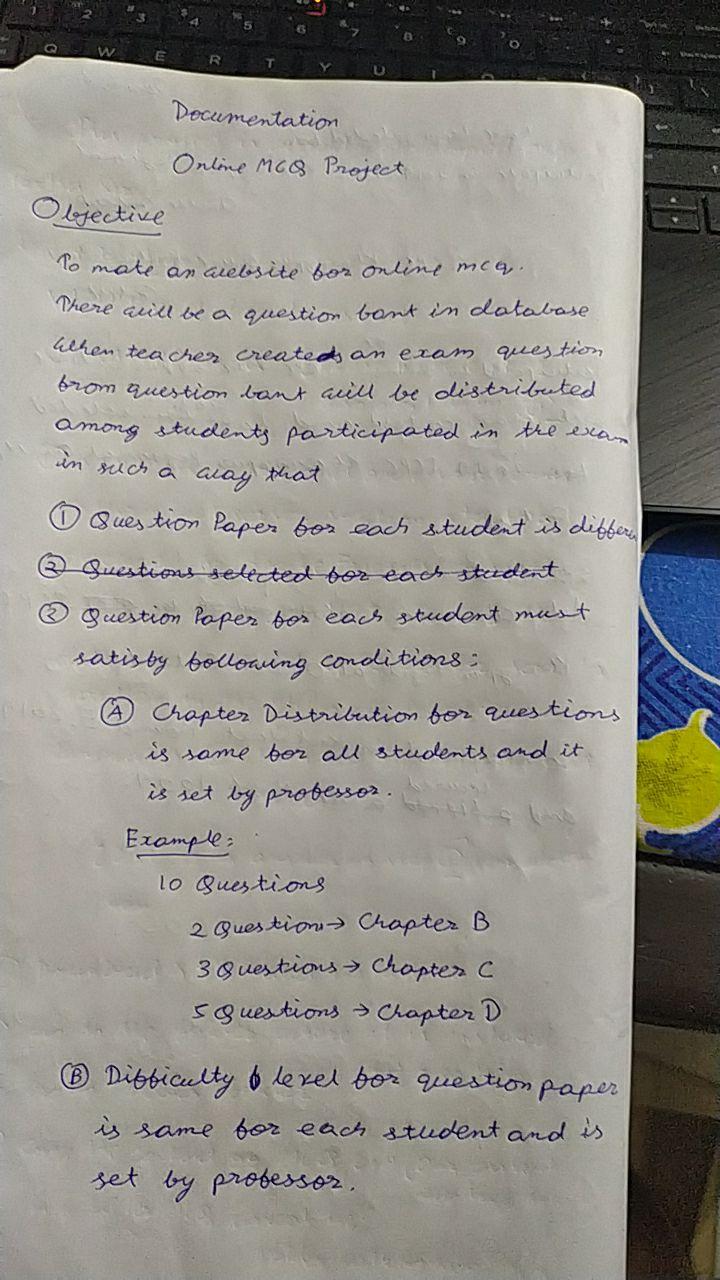 Documentation
Online MCQ Project
Objective
To make an website for online mcq.
There will be a question bank in database
when teacher creates an exam question
from question bank will be distributed
among students participated in the exam
in such a way that
① Question Paper for each student is differe
② Questions selected for each student
② Question Paper for each student must
satisfy following conditions:
Ⓐ Chapter Distribution for questions
is same for all students and it
is set by professor.
Example:
10 Questions
2 Question→ Chapter B
3 Questions → Chapter C
5 Questions → Chapter D
Ⓑ Difficulty level for question paper
is same for each student and is
set by professor.